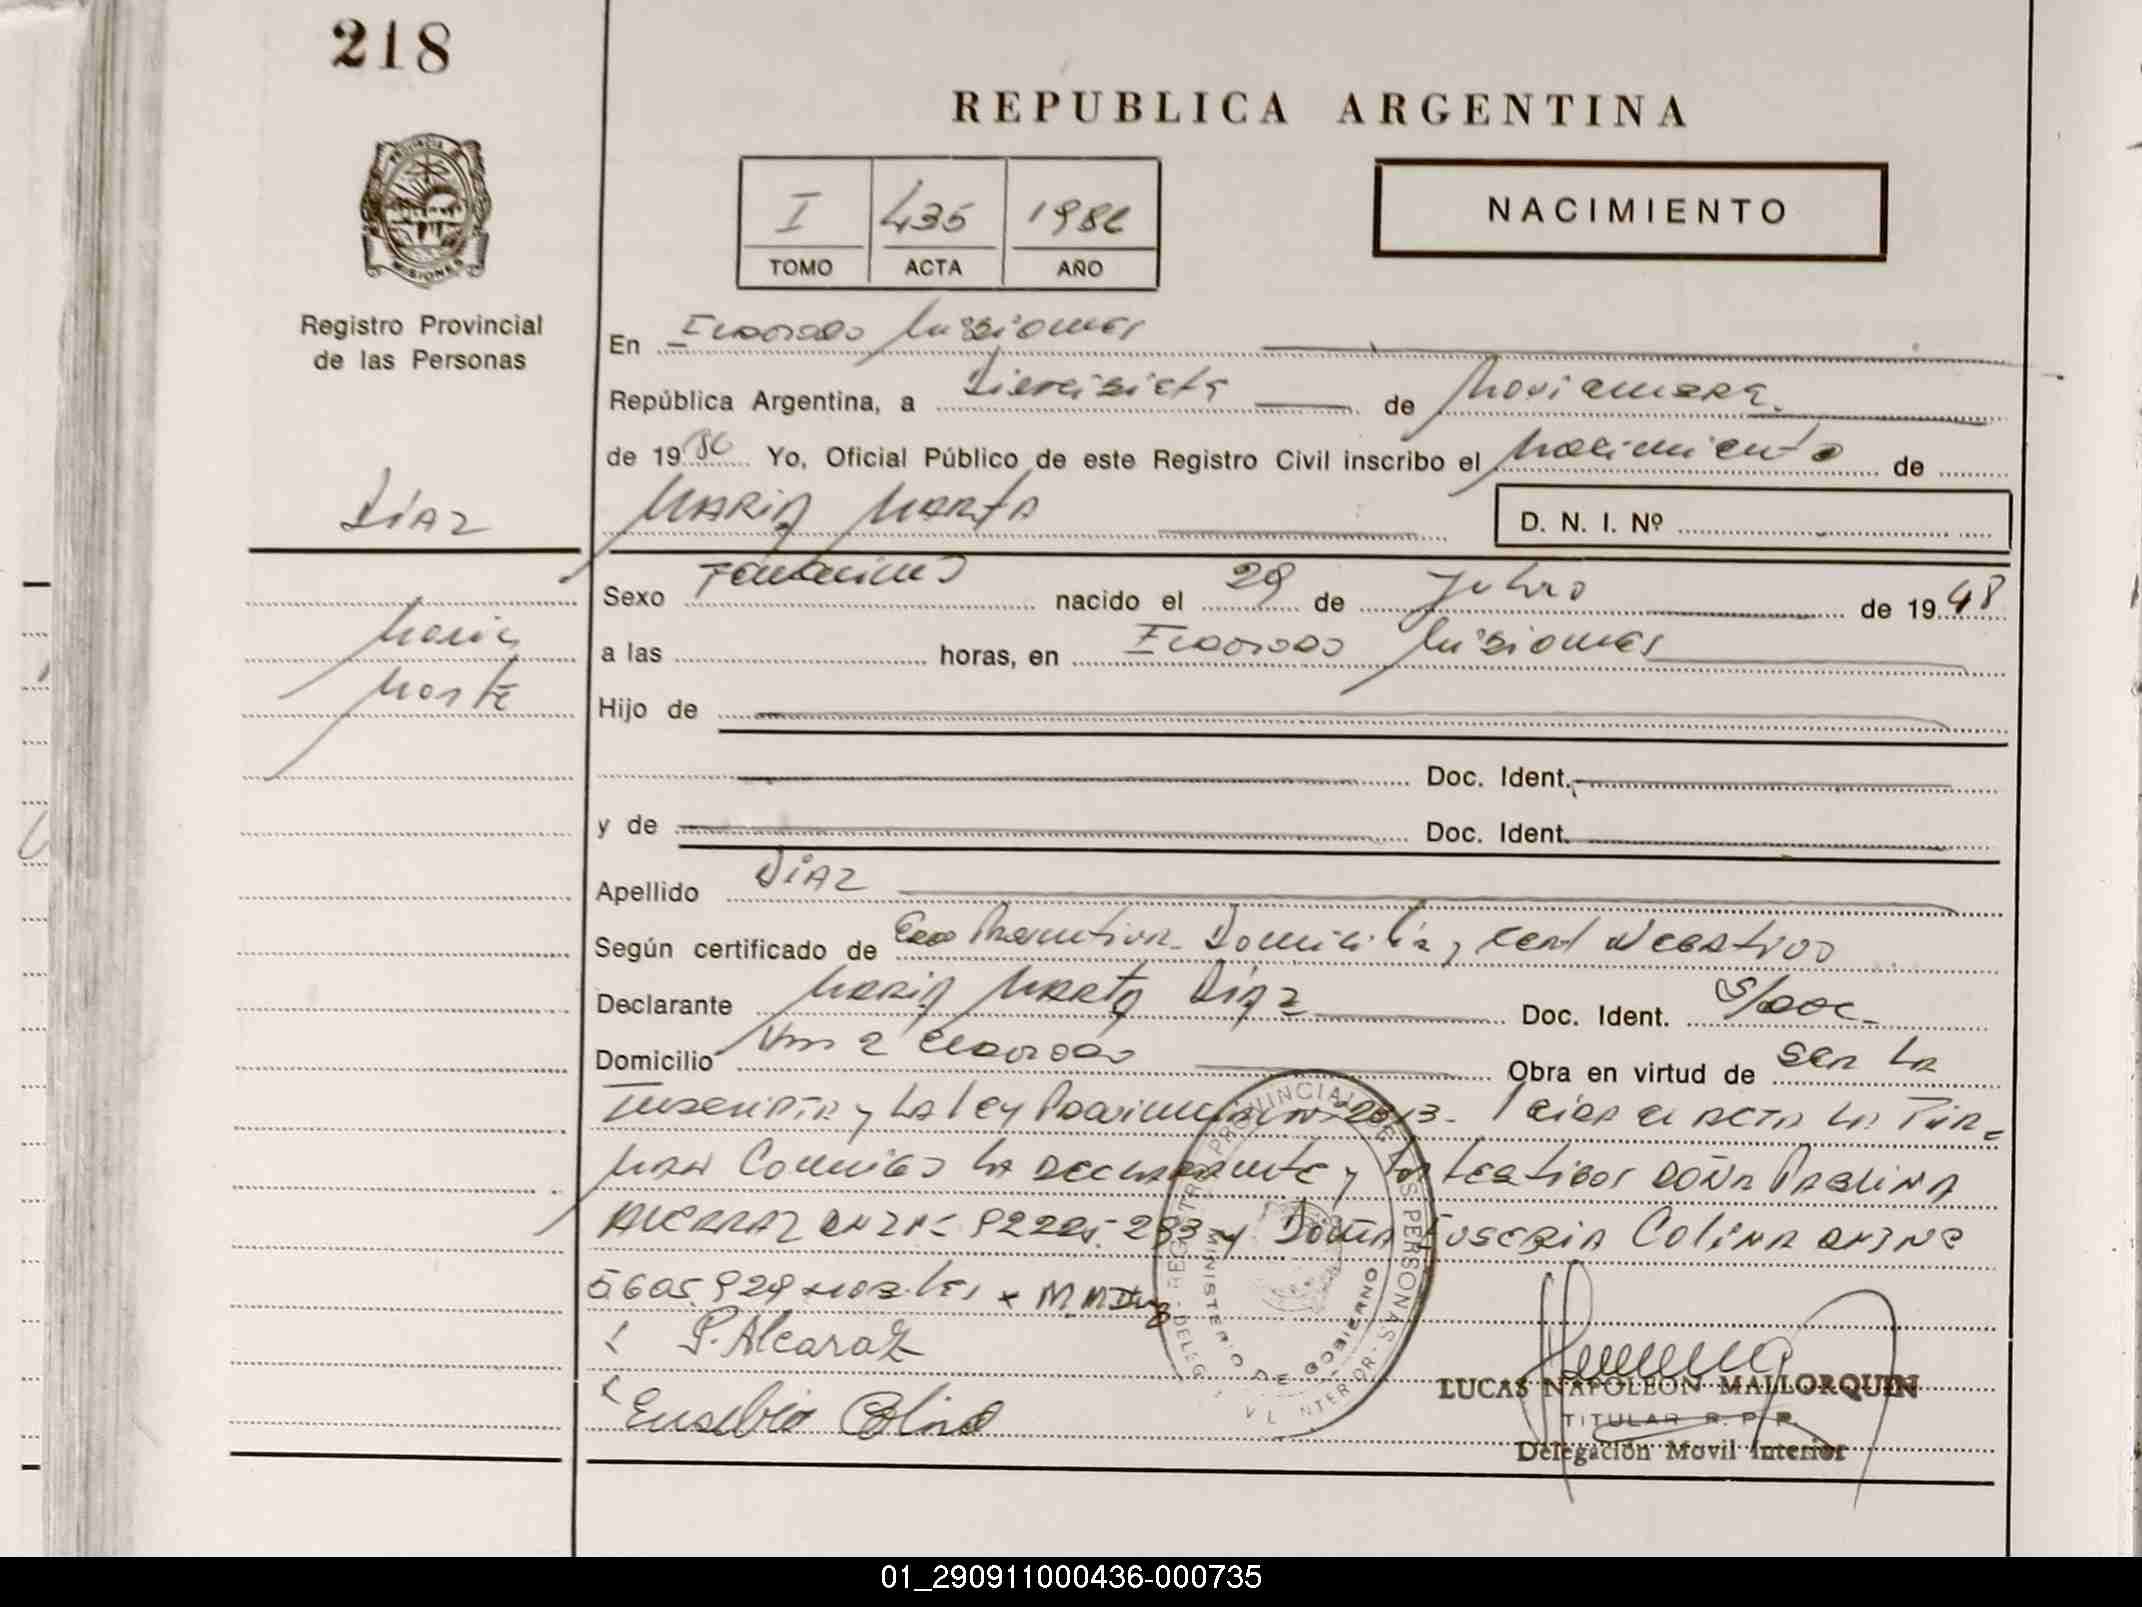 218
REPUBLICA ARGENTINA
PROVINCIA
MISIONES
Registro Provincial
de las Personas
I 435 1986
TOMO ACTA AÑO
NACIMIENTO
En Eldorado Misiones
República Argentina, a Diecisiete de Noviembre
de 1986 Yo, Oficial Público de este Registro Civil inscribo el Nacimiento de
MARIA MARTA
D. N. I. Nº
DÍAZ
Maria
Marta
Sexo Femenino nacido el 29 de Julio de 1948
a las horas, en Eldorado Misiones
Hijo de
Doc. Ident.
y de Doc. Ident.
Apellido DÍAZ
Según certificado de Domicilia, cert Negativo
Declarante Maria Marta Díaz Doc. Ident. S/Doc.
Domicilio Km 2 Eldorado Obra en virtud de ser la
Inscripta y la Ley Provincial Nº 2013. Leida el acta la fir=
man conmigo la declarante y los testigos DOÑA PABLINA
ALCARAZ DNI Nº 92225.283 y Doña Eusebia Colina DNI Nº
5605.929 M.M Diaz
P. Alcaraz
Eusebia Colina
REGISTRO PROVINCIAL DE LAS PERSONAS
MINISTERIO DE GOBIERNO
LUCAS NAPOLEON MALLORQUIN
TITULAR R. P. P.
Delegación Movil Interior
01_290911000436-000735